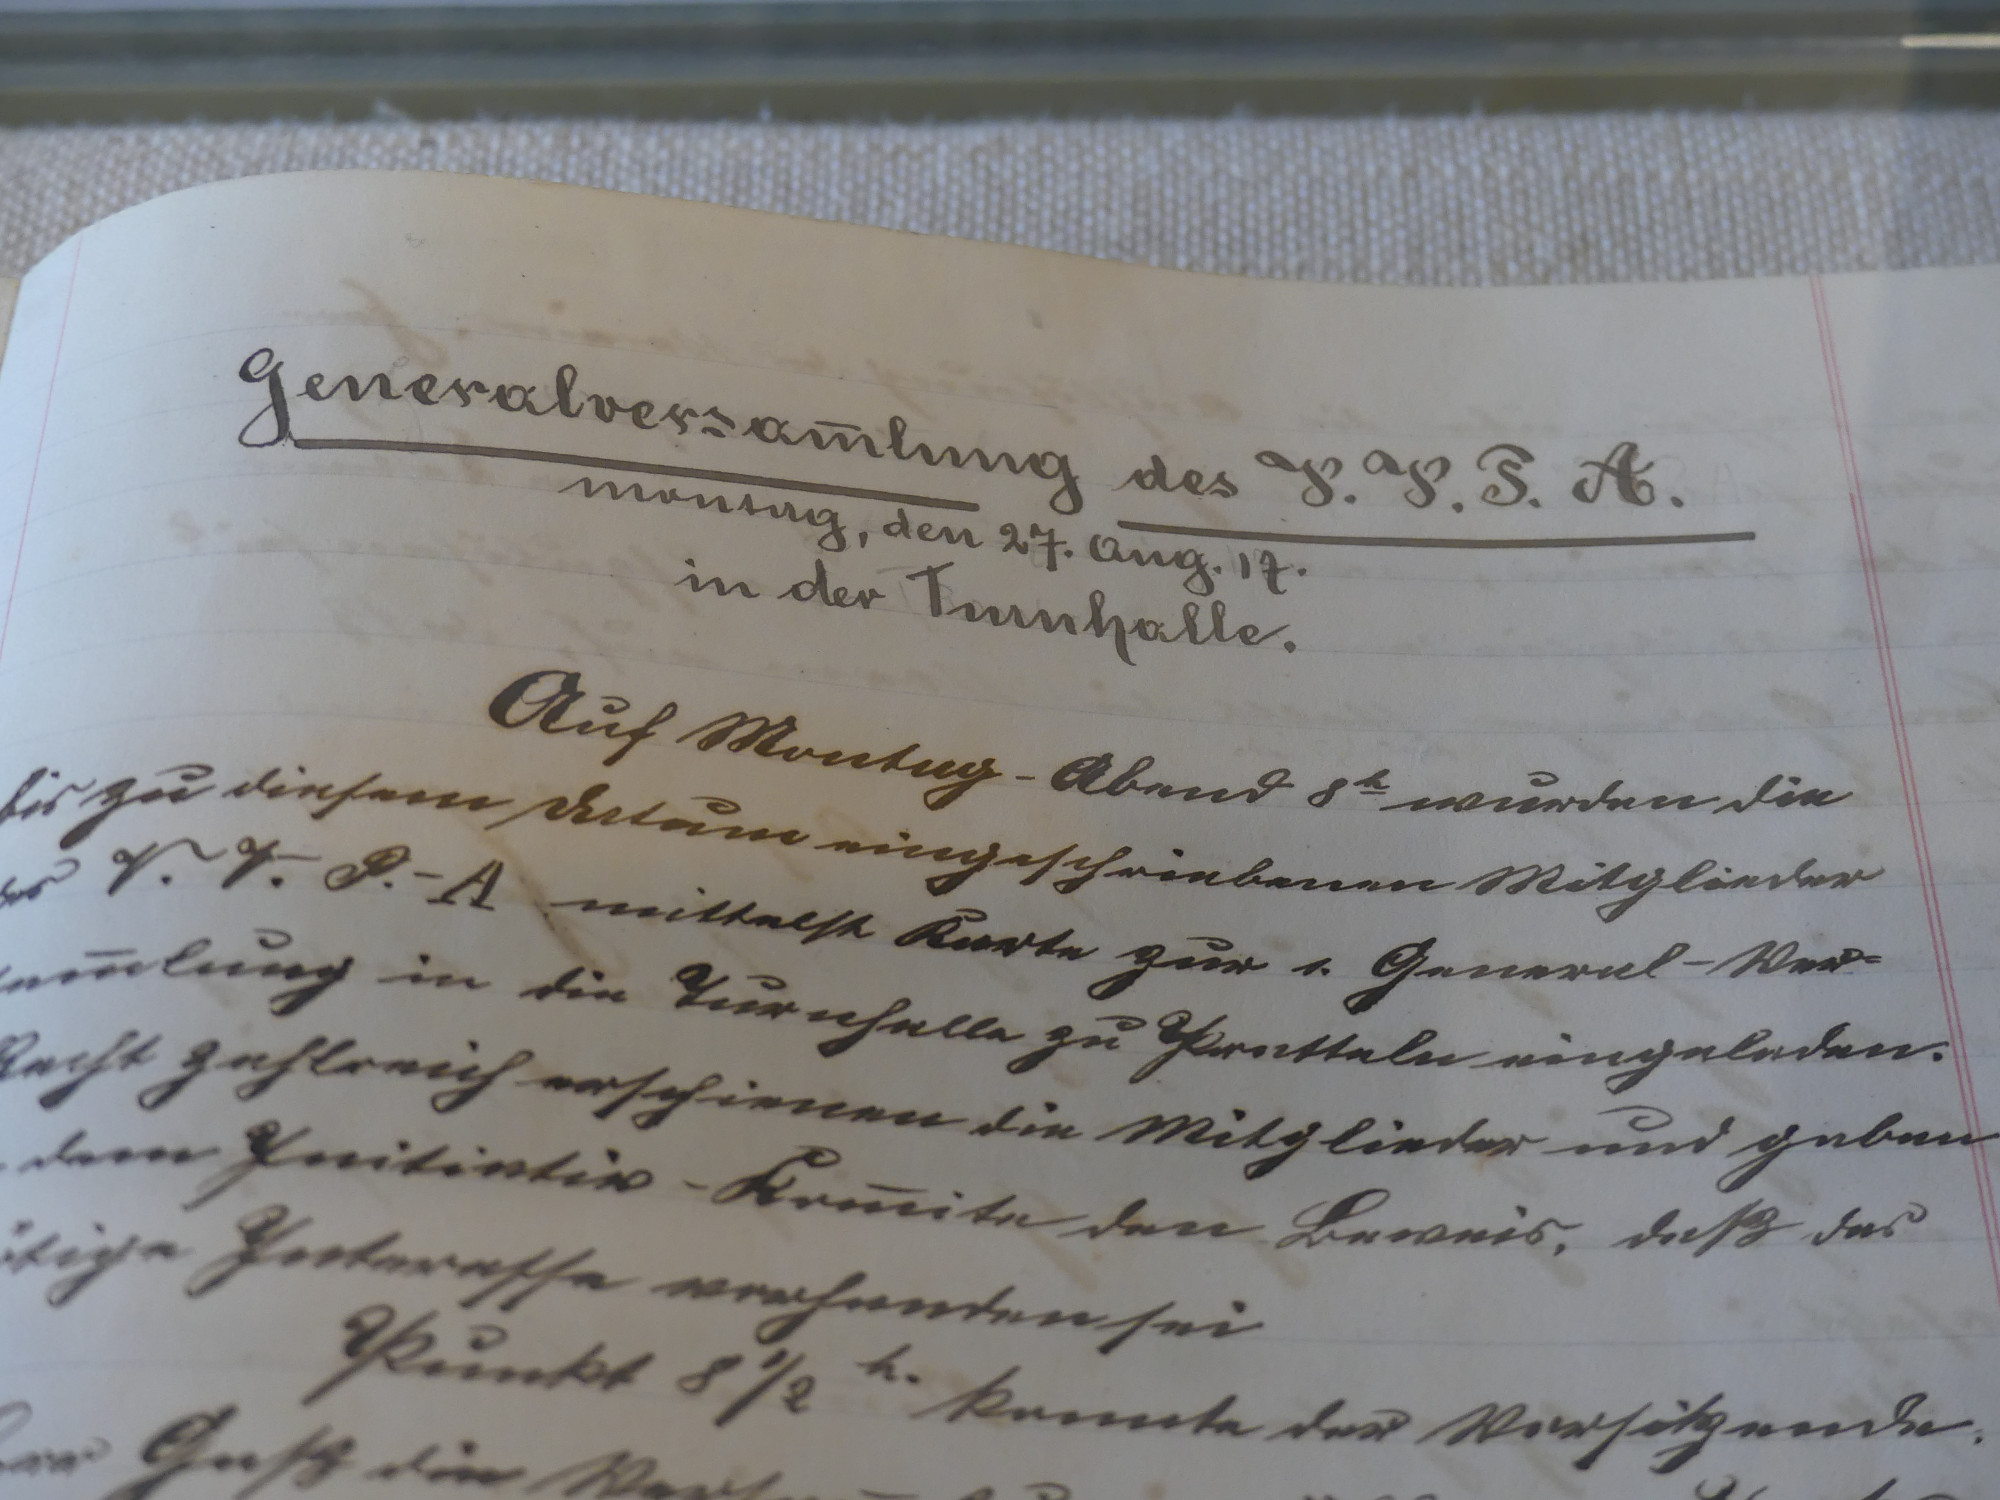 Generalversam̅lung des V. V. P. A.
Montag, den 27. Aug. 17.
in der Turnhalle.
Auf Montag-Abend 8h wurden die
bis zu diesem Datum eingeschriebenen Mitglieder
des V. V. P.-A mittelst Karte zur 1. General-Ver=
sam̅lung in die Turnhalle zu Pratteln eingeladen.
Recht zahlreich erschienen die Mitglieder und gaben
dem Initiativ-Kom̅ite den Beweis, daß das
nötige Interesse vorhanden sei
Punkt 8 1/2 h. konnte der Vorsitzende,
Herr Gaß die